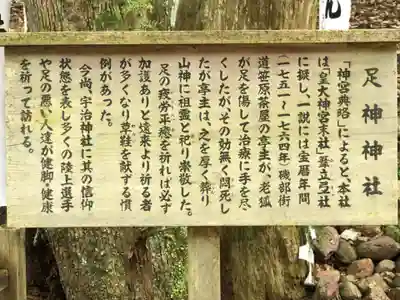 足神神社
「神宮典略」によると、本社
は「皇大神宮末社」葦立弖社
に擬し、一説には宝暦年間
一七五一〜一七六四年、磯部街
道笹原茶屋の亭主が、老狐
が足を傷して治療に手を尽
くしたが、その効無く悶死し
たが亭主は、之を厚く葬り
山神に祖霊と祀り崇敬した。
足の疲労平癒を祈れば必ず
加護ありと遠来より祈る者
が多くなり草鞋を献ずる慣
例があった。
今尚、宇治神社に其の信仰
状態を表し多くの陸上選手
や足の悪い人達が健脚・健康
を祈って訪れる。